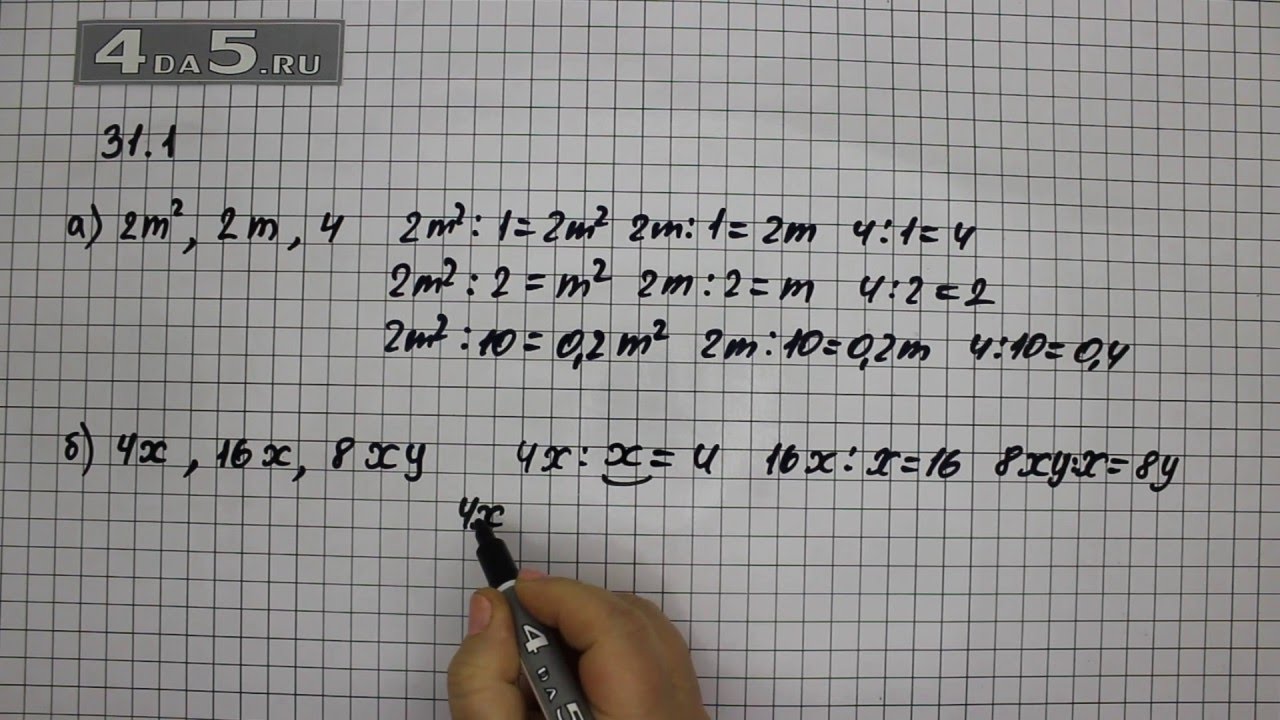 4DA5.RU
31.1
а) 2m², 2m, 4 2m² : 1 = 2m² 2m : 1 = 2m 4 : 1 = 4
2m² : 2 = m² 2m : 2 = m 4 : 2 = 2
2m² : 10 = 0,2m² 2m : 10 = 0,2m 4 : 10 = 0,4
б) 4x, 16x, 8xy 4x : x = 4 16x : x = 16 8xy : x = 8y
4x
4DA5